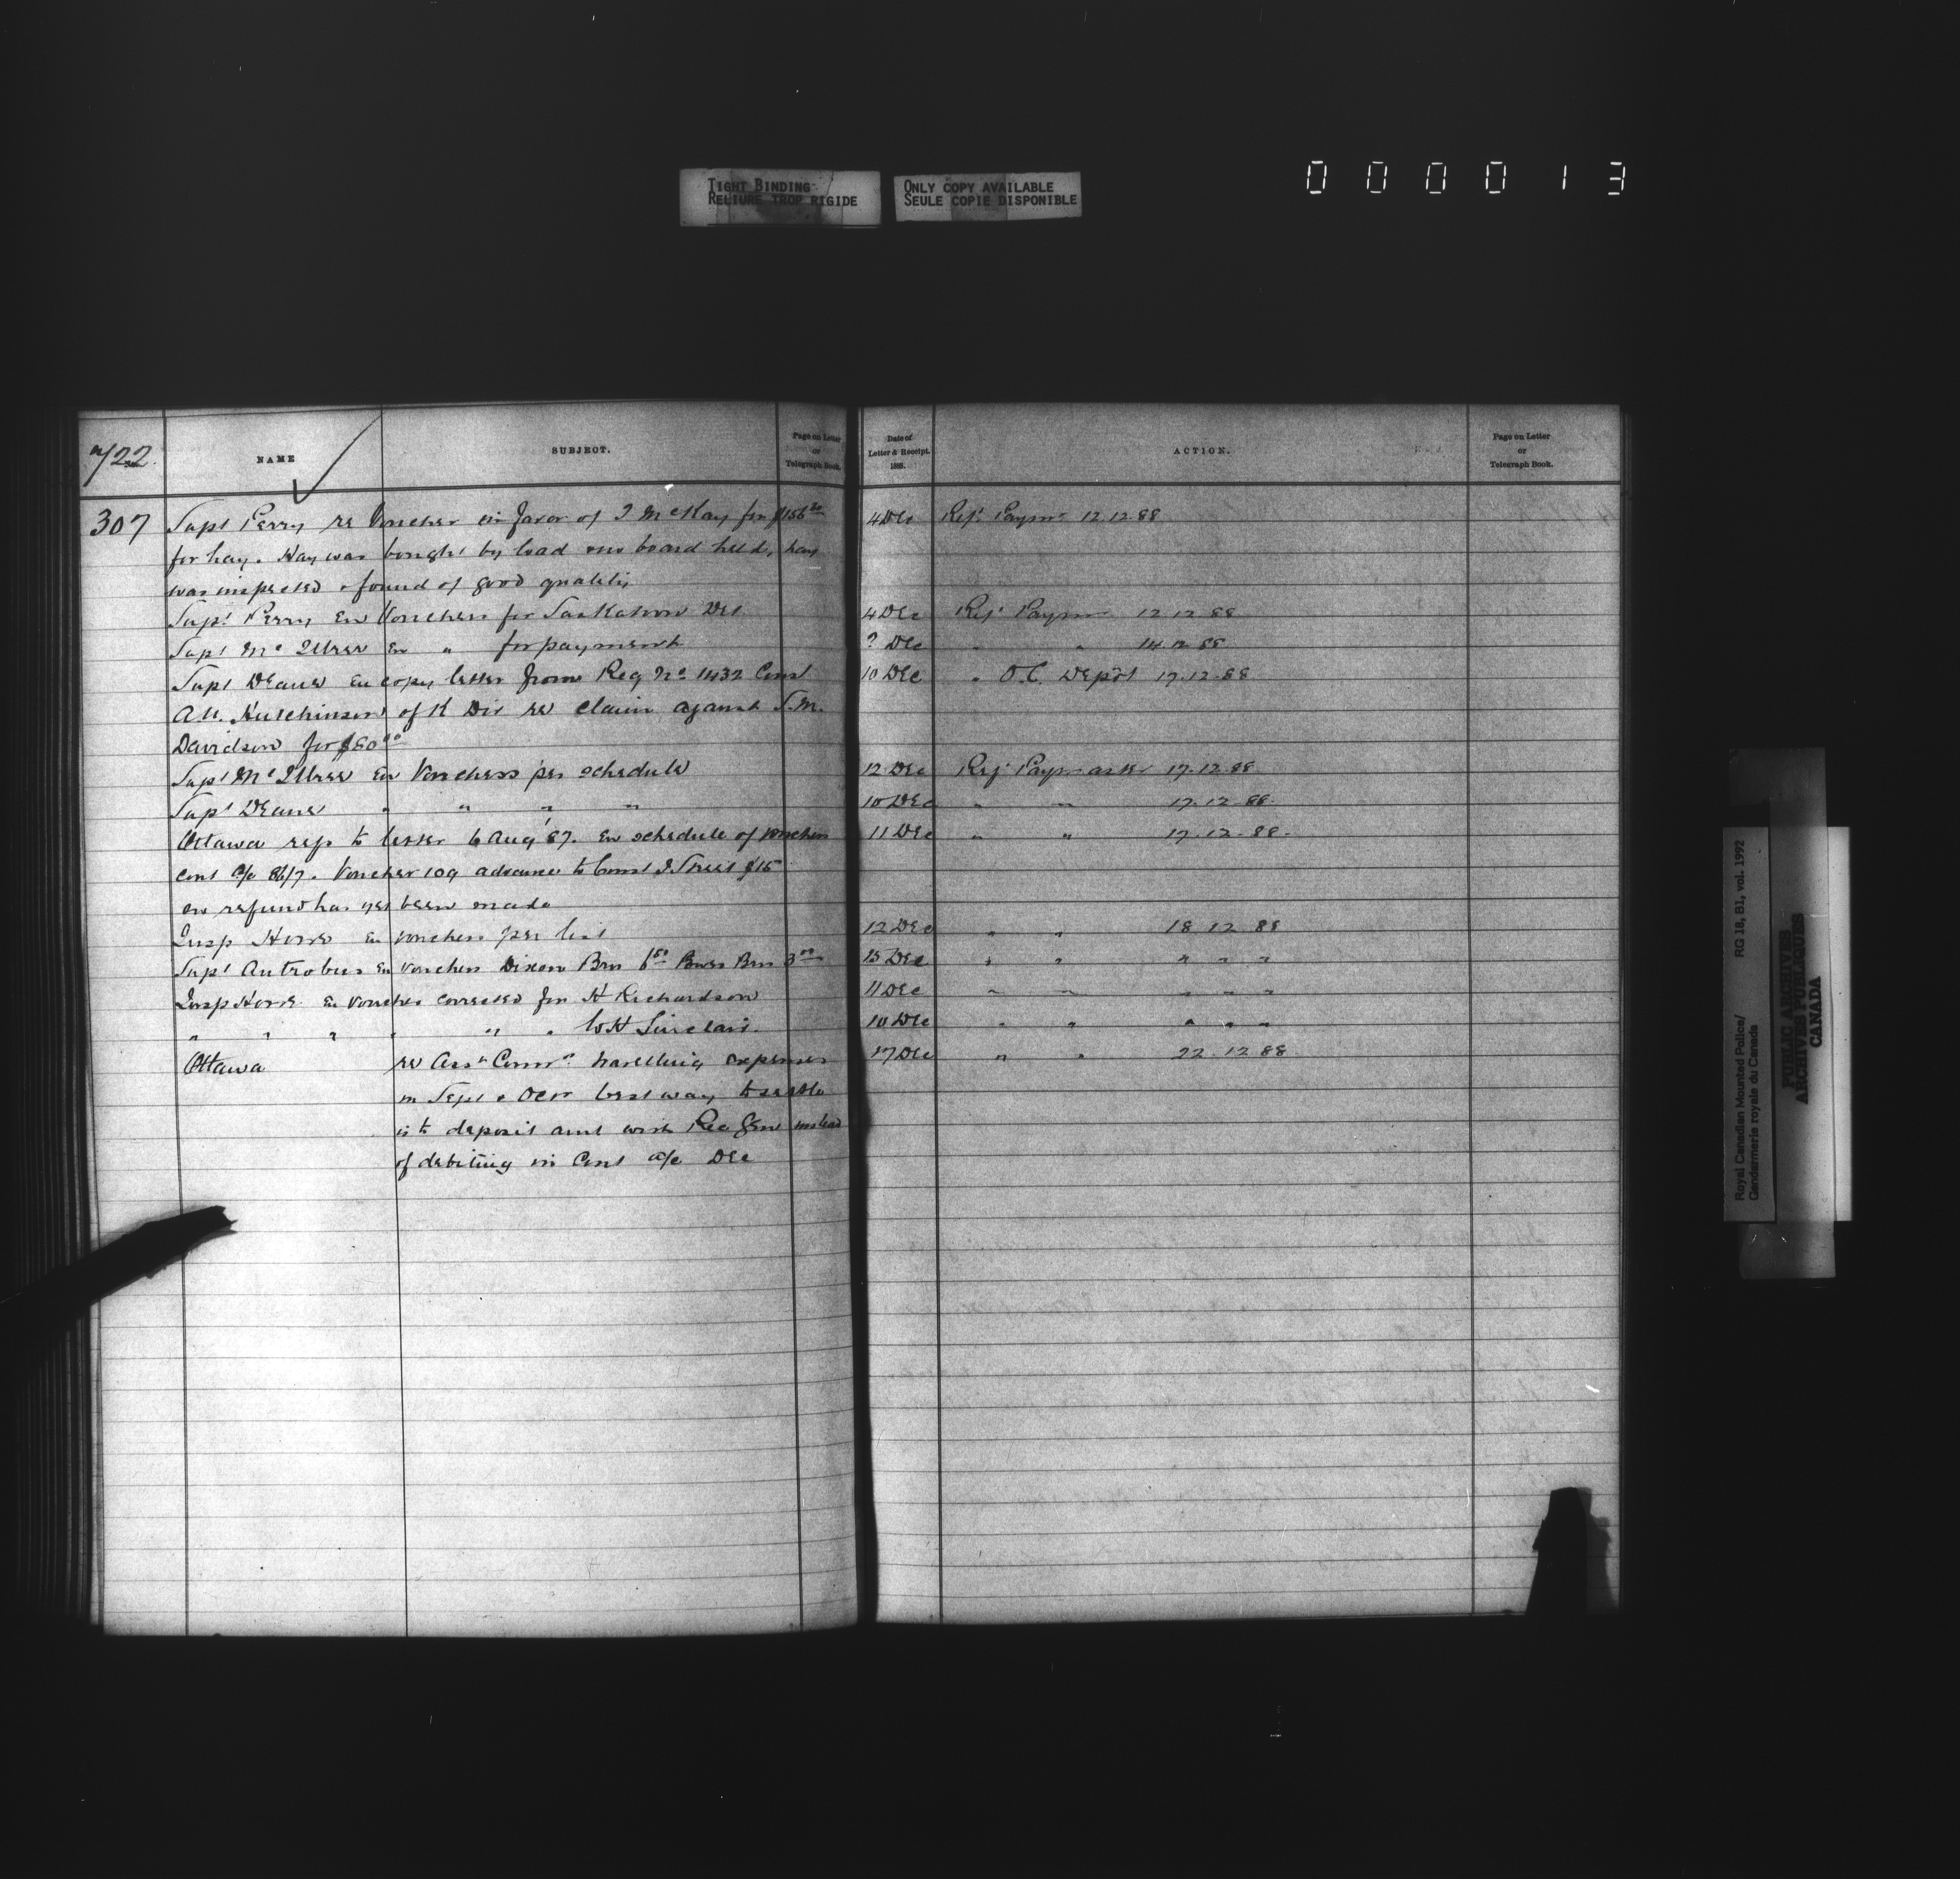 TIGHT BINDING
RELIURE TROP RIGIDE
ONLY COPY AVAILABLE
SEULE COPIE DISPONIBLE
000013
722
NAME
SUBJECT.
Page on Letter
or
Telegraph Book.
Date of
Letter & Receipt.
188 .
ACTION.
Page on Letter
or
Telegraph Book.
307 Supt Perry re Voucher in favor of J McKay for $156 4 Dec Ref. Paymr 12.12.88
for hay. Hay was bought by load on board held, hay
was inspected & found of good quality
Supt Perry En Vouchers for Saskatoon Det. 4 Dec Ref Paymr 12 12 88
Supt Mc Illree En " for payment ? Dec " " 14.12.88
Supt Deane En copy letter from Reg No 1432 Const 10 Dec " O.C. Depôt 17.12.88
A.H. Hutchinson of K Div re claim against S.M.
Davidson for $80 00
Supt Mc Illree En Vouchers per schedule 12 Dec Ref Paymaster 17.12.88
Supt Deane " " " " 10 Dec " " 17.12.88.
Ottawa rep to letter 6 Aug 87. En schedule of vouchers 11 Dec " " 17.12.88.
Cont a/c 86/7. Voucher 109 advance to Const J. Street $15
no refund has yet been made
Insp Howe En vouchers per list 12 Dec " " 18 12 88
Supt Antrobus En vouchers Dixon Bros 6 Bros 3 00 15 Dec " " " " "
Insp Howe En voucher corrected for H Richardson 11 Dec " " " " "
" " " " " " W H Sinclair. 10 Dec " " " " "
Ottawa re Asst Commr travelling expenses 17 Dec " " 22.12 88
in Sept & Octr best way to settle
is to deposit amt with Rec Genl instead
of debiting in Cont a/c Dec
Royal Canadian Mounted Police/
Gendarmerie royale du Canada
RG 18, B1, vol. 1992
PUBLIC ARCHIVES
ARCHIVES PUBLIQUES
CANADA